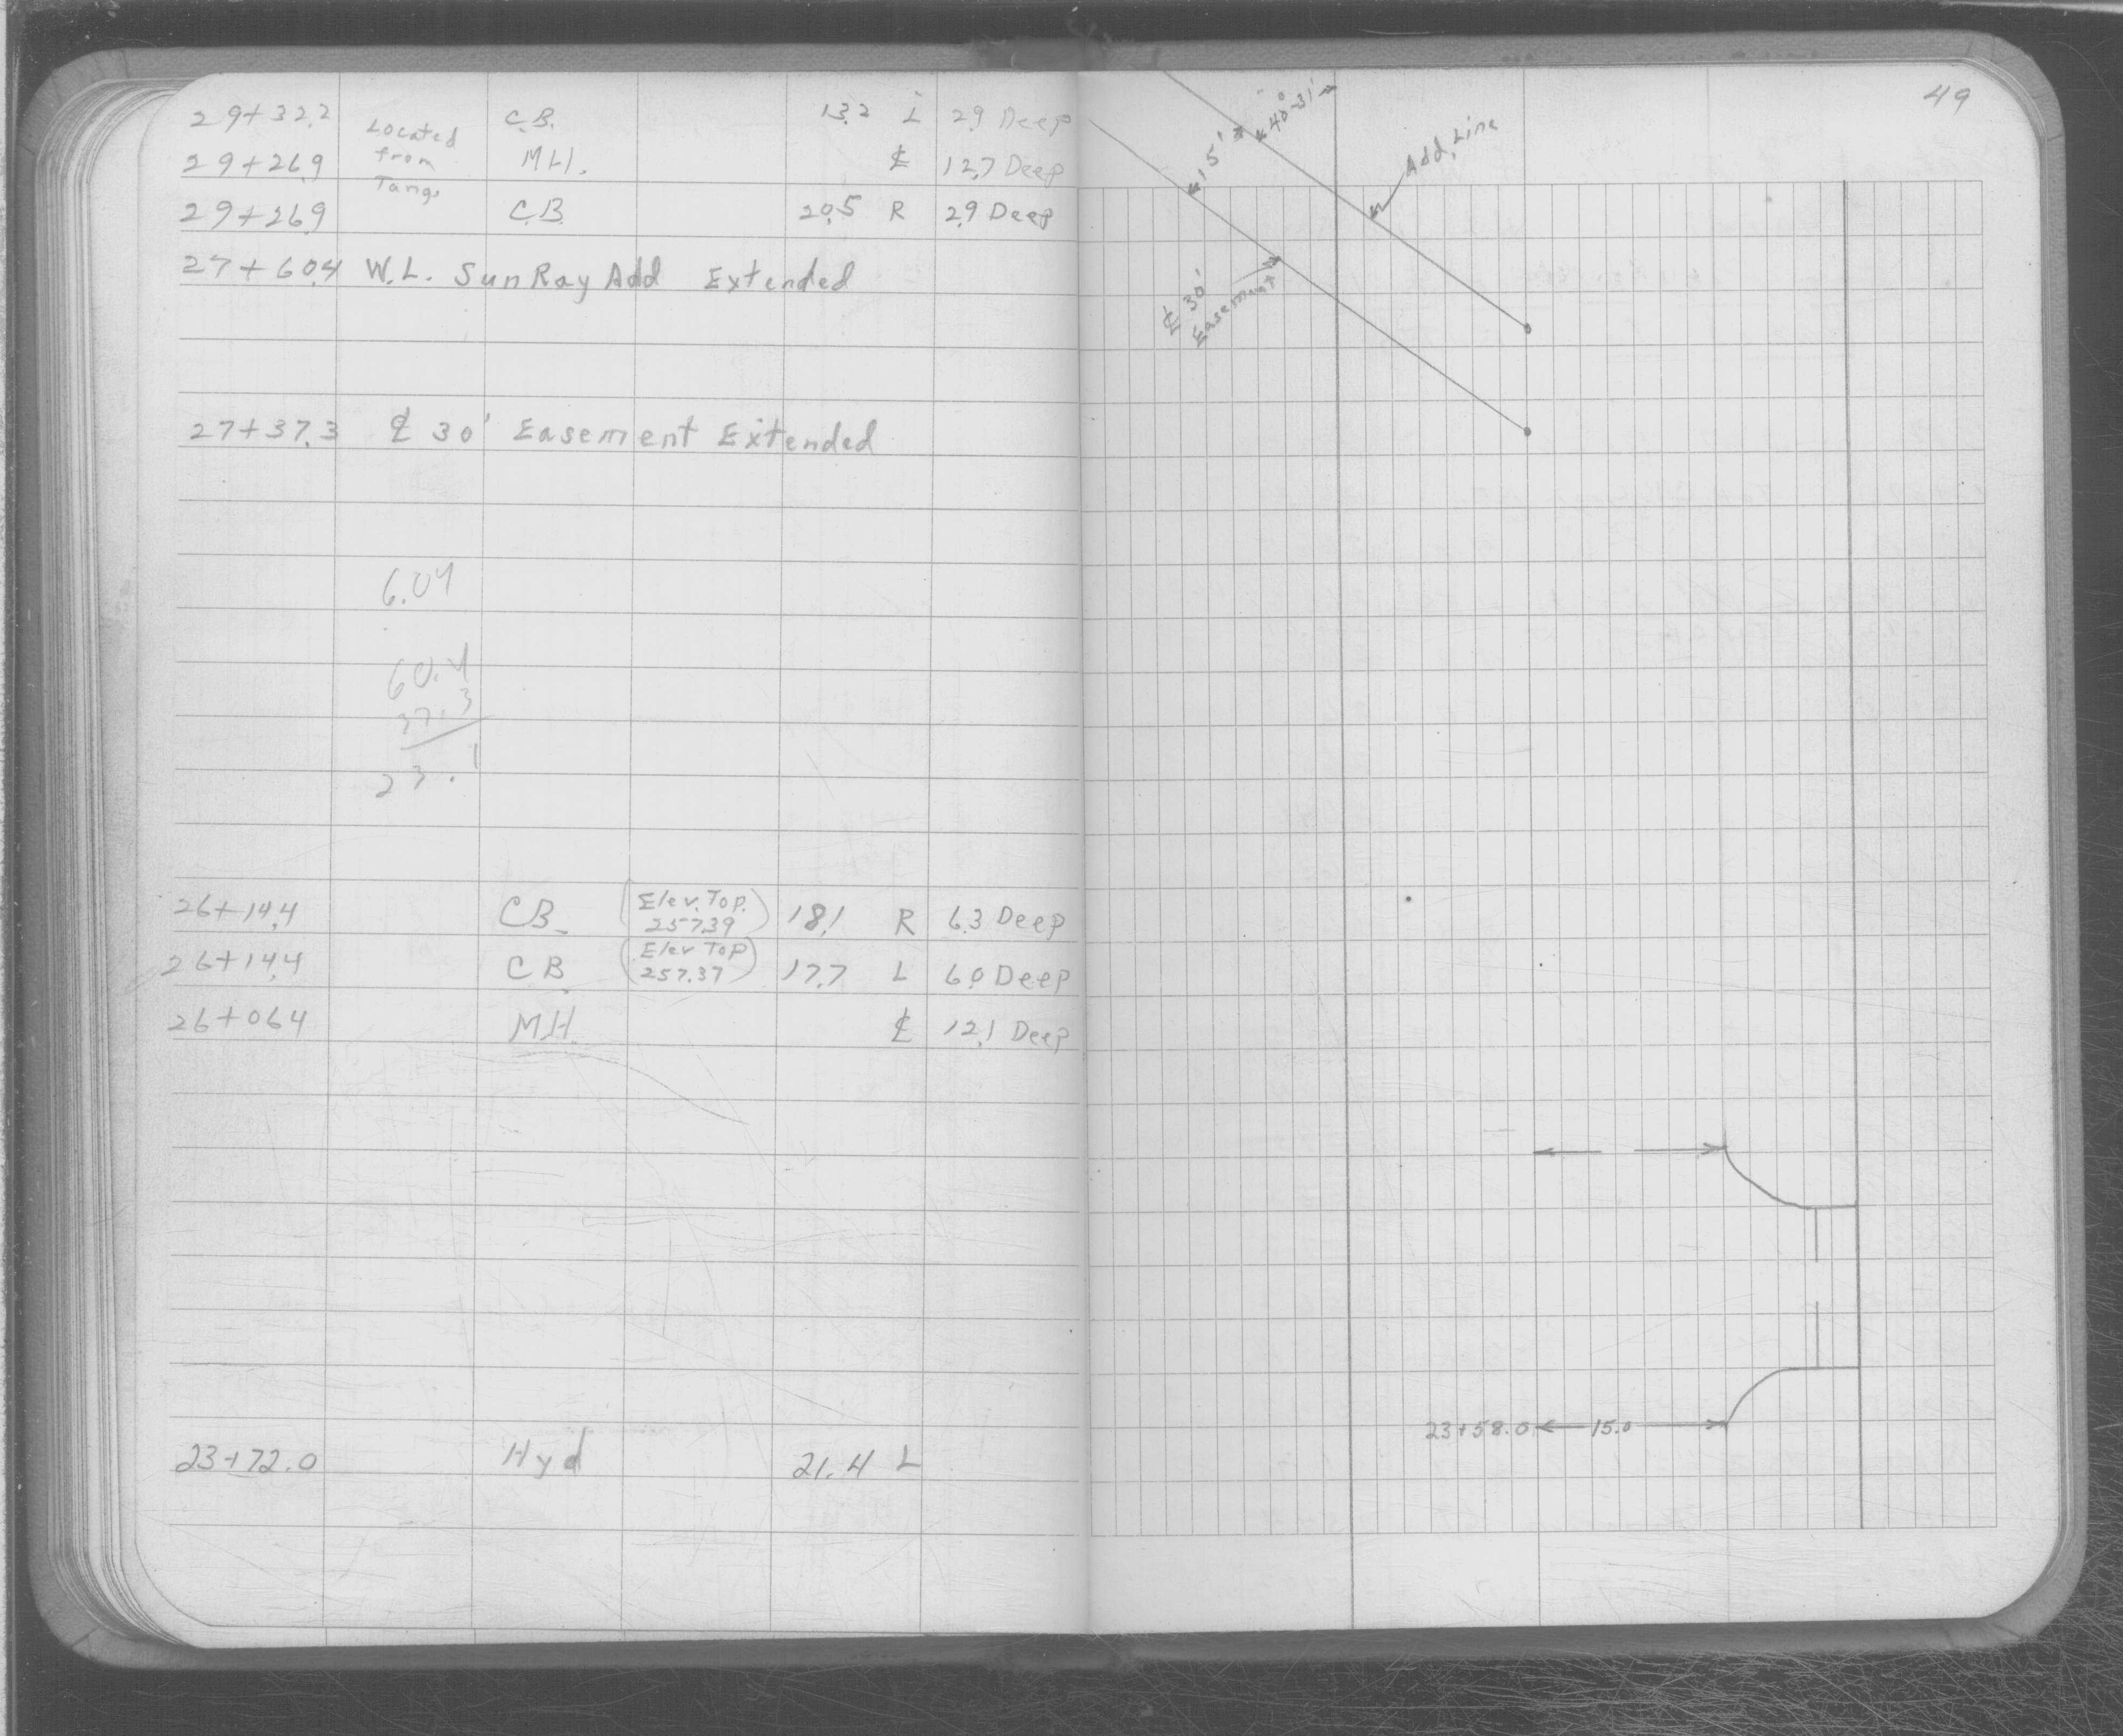 29+32.2 C.B. 13.2 L 2.9 Deep
Located
from
Tang.
29+26.9 M.H. ℄ 12.7 Deep
29+26.9 C.B. 20.5 R 2.9 Deep
27+60.4 W.L. Sun Ray Add Extended
27+37.3 ℄ 30' Easement Extended
6.04
60.4
37.3
23.1
26+14.4 CB (Elev. Top. 257.39) 18.1 R 6.3 Deep
26+14.4 CB (Elev Top 257.37) 17.7 L 6.0 Deep
26+06.4 MH. ℄ 12.1 Deep
23+72.0 Hyd 21.4 L
49
15'
40°-31'
Add. Line
℄ 30'
Easement
23+58.0 15.0